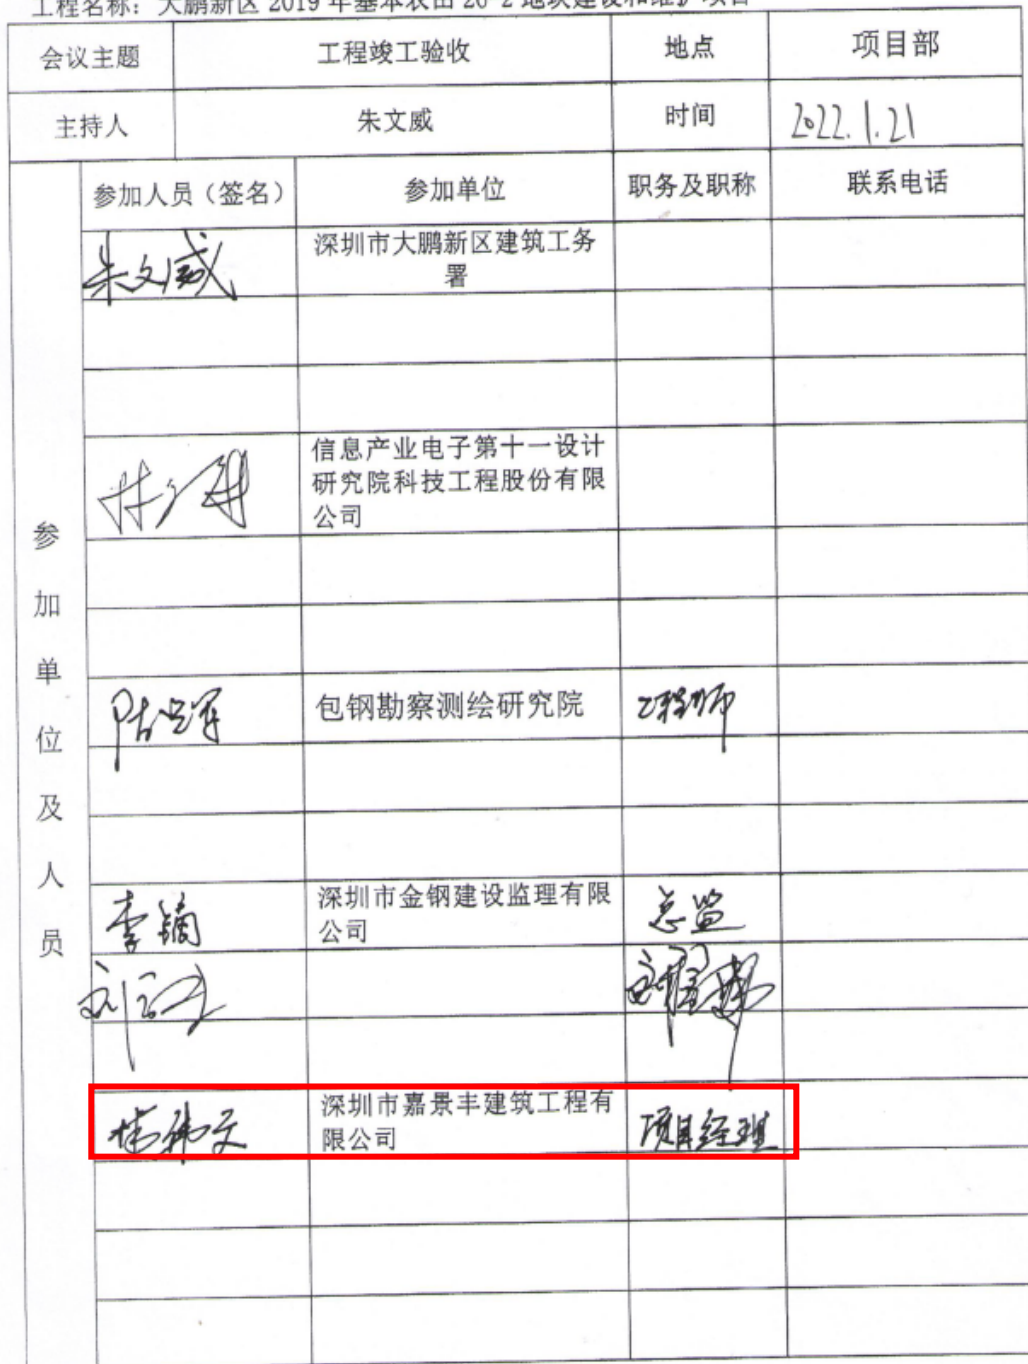 工程名称：大鹏新区 2019 年基本农田 20-2 地块建设和维护项目
会议主题 工程竣工验收 地点 项目部
主持人 朱文威 时间 2022.1.21
参加人员（签名） 参加单位 职务及职称 联系电话
朱文威 深圳市大鹏新区建筑工务
署
信息产业电子第十一设计
研究院科技工程股份有限
公司
包钢勘察测绘研究院 工程师
李镝 深圳市金钢建设监理有限
公司 总监
深圳市嘉景丰建筑工程有
限公司 项目经理
参加单位及人员